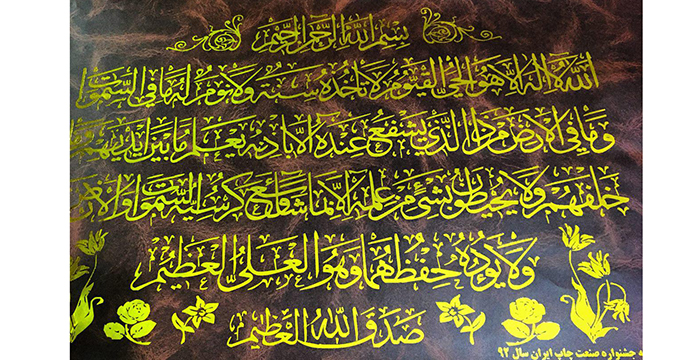 بسم الله الرحمن الرحيم
الله لا اله الا هو الحي القيوم لا تأخذه سنة ولا نوم له ما في السموات
وما في الارض من ذا الذي يشفع عنده الا باذنه يعلم ما بين ايديهم وما
خلفهم ولا يحيطون بشيء من علمه الا بما شاء وسع كرسيه السموات والارض
ولا يؤده حفظهما وهو العلي العظيم
صدق الله العظيم
جشنواره صنعت چاپ ایران سال ۹۲